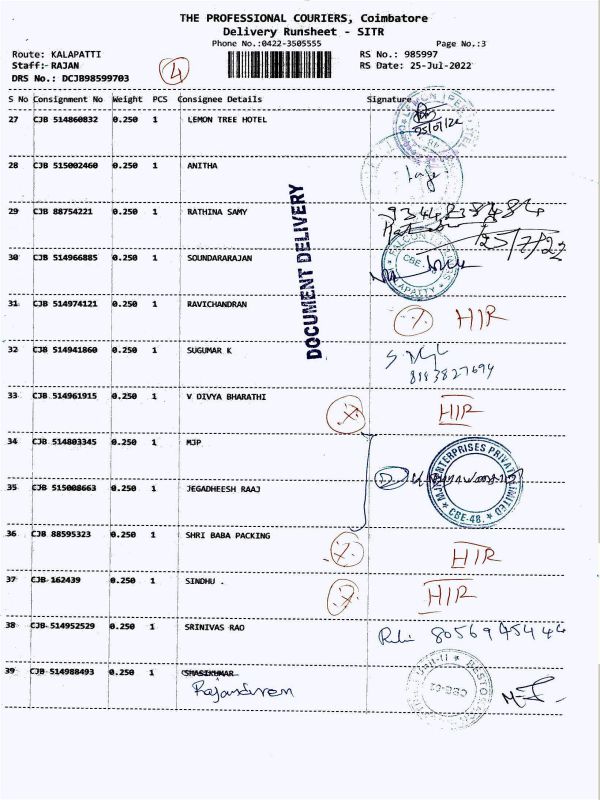 THE PROFESSIONAL COURIERS, Coimbatore
Delivery Runsheet - SITR
Phone No.:0422-3505555 Page No.:3
Route: KALAPATTI RS No.: 985997
Staff:- RAJAN RS Date: 25-Jul-2022
DRS No.: DCJB98599703
4
S No Consignment No Weight PCS Consignee Details Signature
27 CJB 514860832 0.250 1 LEMON TREE HOTEL
25/07/22
28 CJB 515002460 0.250 1 ANITHA
29 CJB 88754221 0.250 1 RATHINA SAMY
25/7/22
30 CJB 514966885 0.250 1 SOUNDARARAJAN
CBE
KALAPATTY
DOCUMENT DELIVERY
31 CJB 514974121 0.250 1 RAVICHANDRAN
HIR
32 CJB 514941860 0.250 1 SUGUMAR K
8183827694
33 CJB 514961915 0.250 1 V DIVYA BHARATHI
HIR
34 CJB 514803345 0.250 1 MJP
MJP ENTERPRISES PRIVATE LIMITED
CBE-48.
35 CJB 515008663 0.250 1 JEGADHEESH RAAJ
36 CJB 88595323 0.250 1 SHRI BABA PACKING
HIR
37 CJB 162439 0.250 1 SINDHU .
HIR
38 CJB 514952529 0.250 1 SRINIVAS RAO
8056945444
39 CJB 514988493 0.250 1 SHASIKUMAR